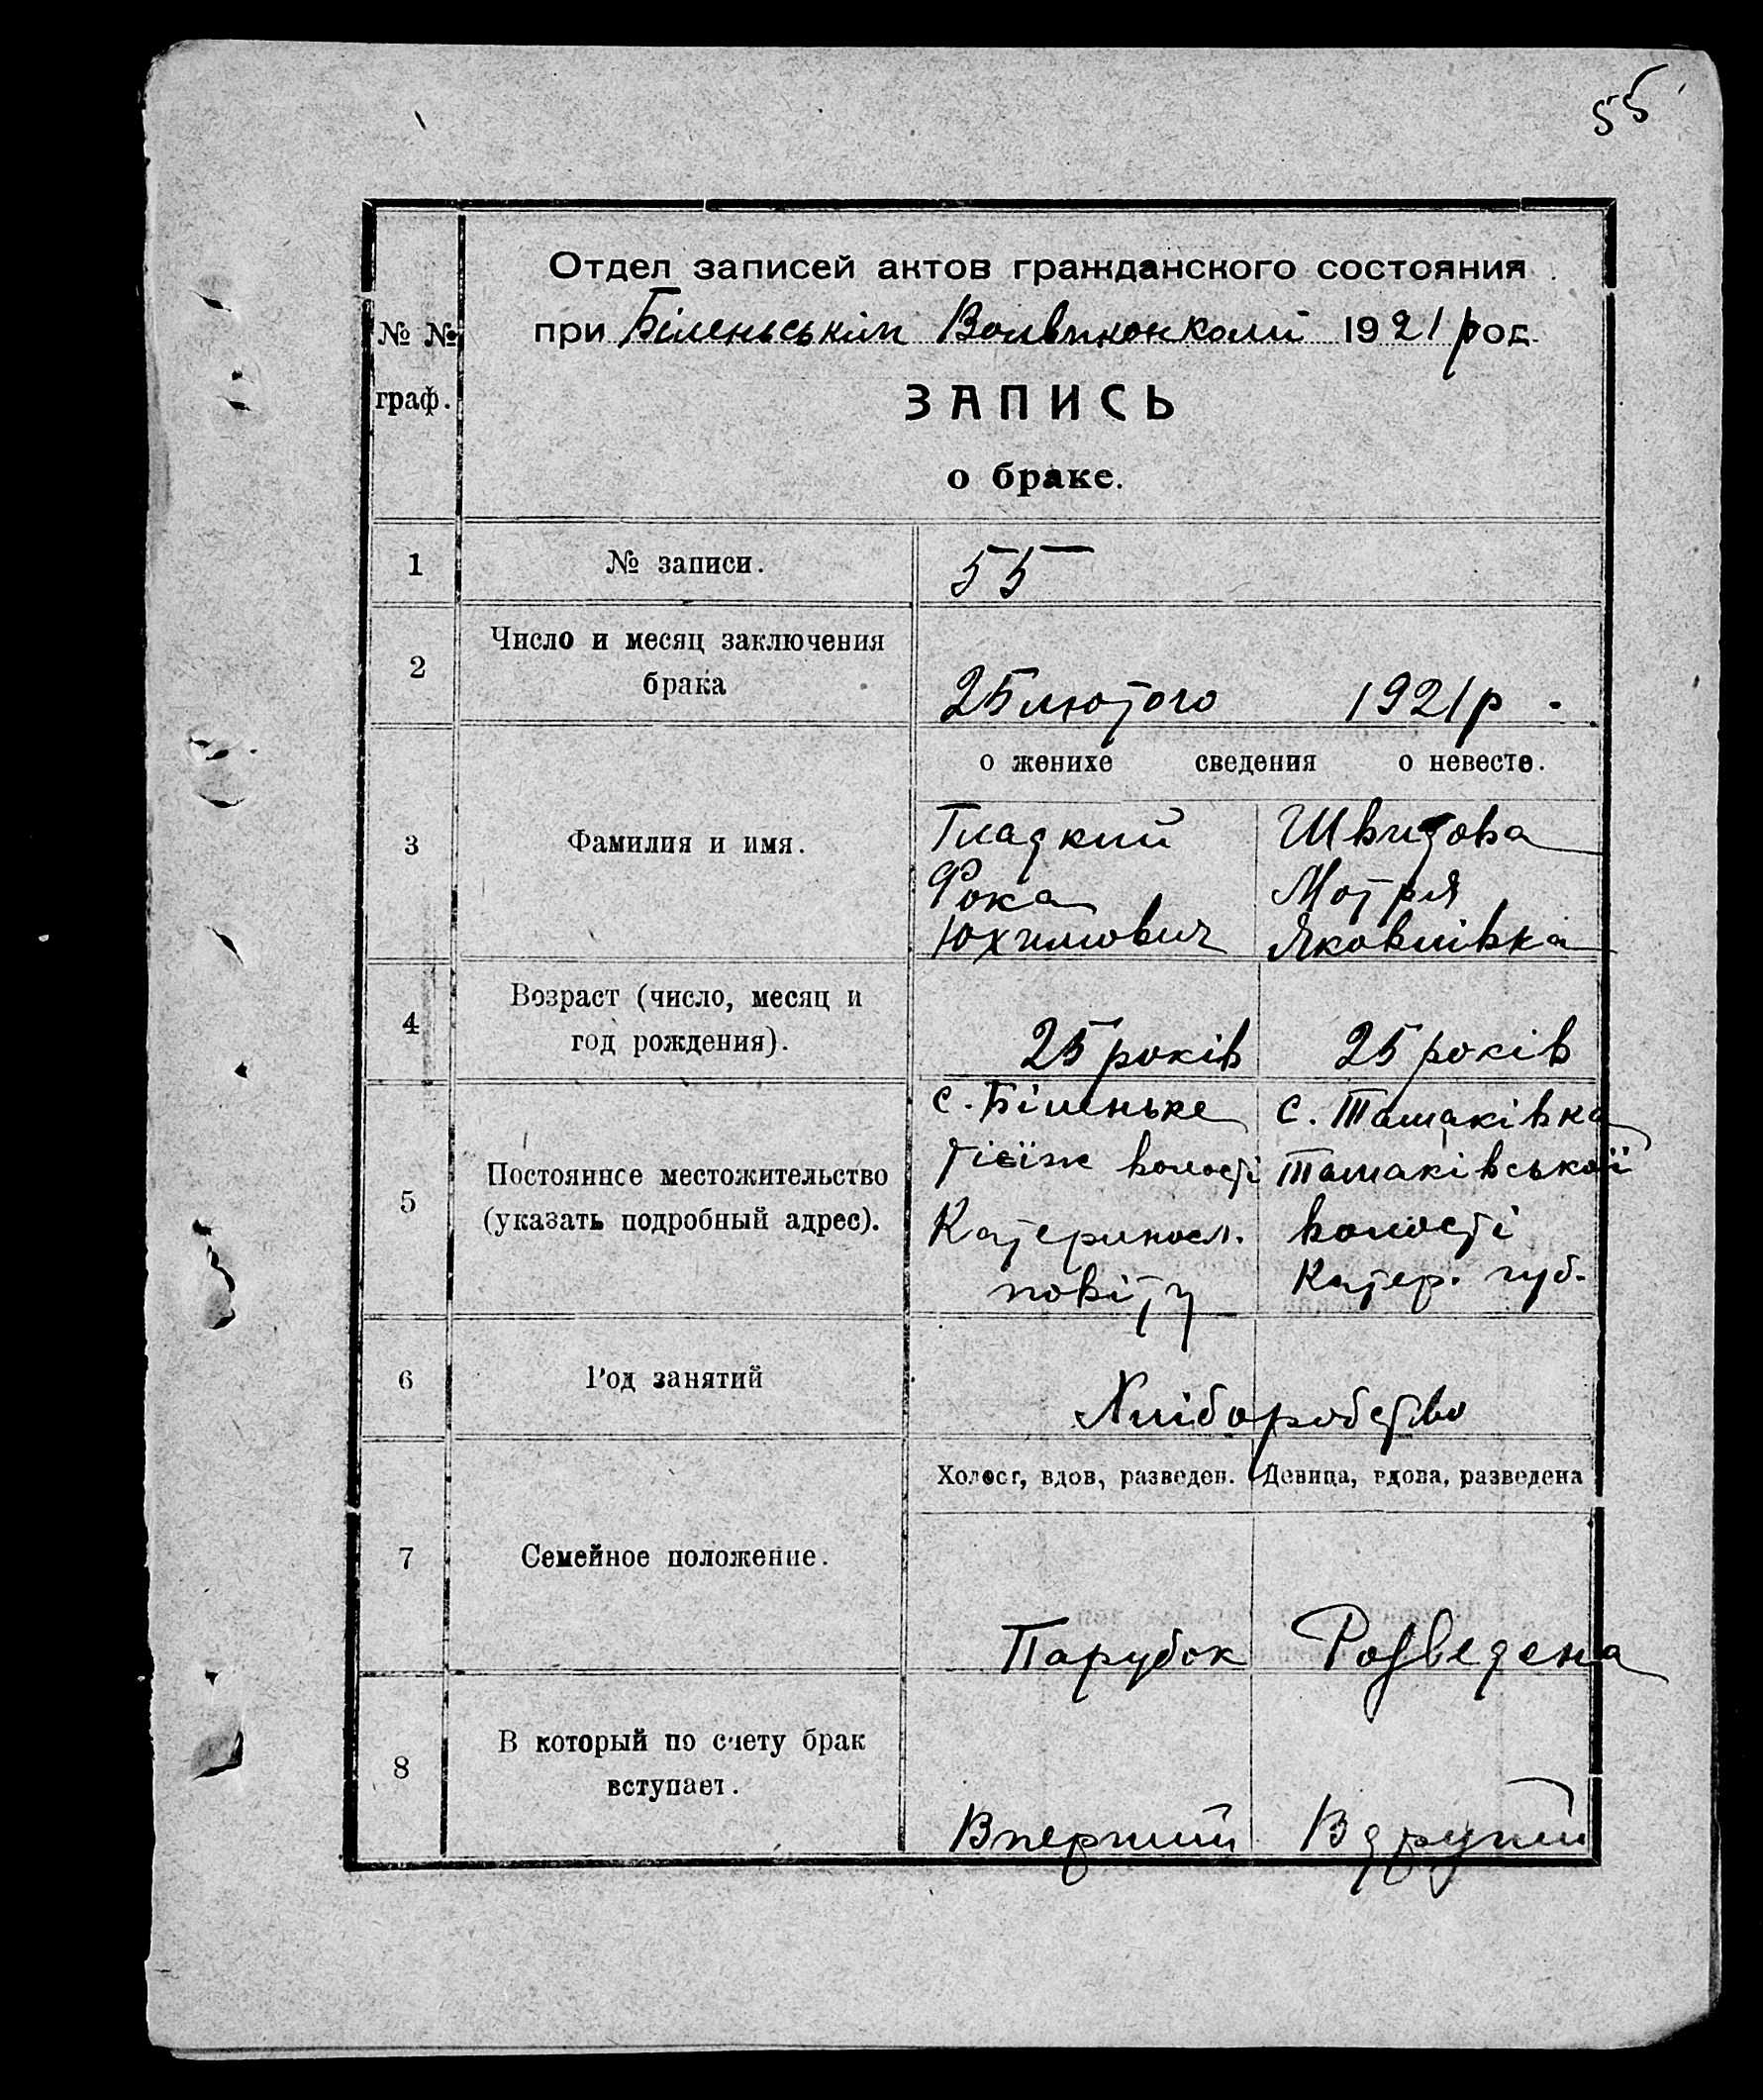 55
№ №
граф.
Отдел записей актов гражданского состояния
при Біленьськім Волвиконкомі 1921 род.
ЗАПИСЬ
о браке.
1
№ записи.
55
2
Число и месяц заключения
брака
25 лютого 1921 р.
о женихе сведения о невесте.
3
Фамилия и имя.
Гладкий
Фока
Юхимович
Швидова
Мотря
Яковлівка
4
Возраст (число, месяц и
год рождения).
25 років
25 років
5
Постоянное местожительство
(указать подробный адрес).
с. Біленьке
тієїж волості
Катериносл.
повіту
с. Томаківка
Томаківської
волості
Катер. губ.
6
Род занятий
Хліборобство
7
Семейное положение.
Холост, вдов, разведен.
Девица, вдова, разведена
Парубок
Розведена
8
В который по счету брак
вступает.
Вперший
Вдругий